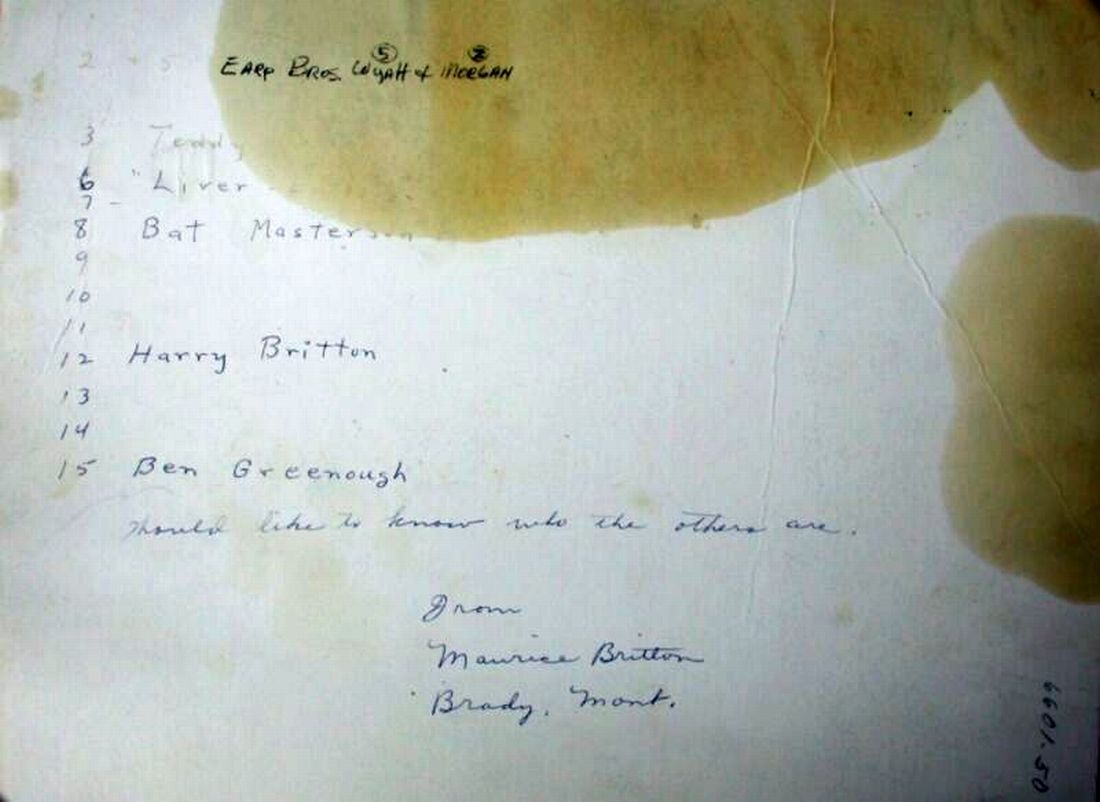 ⑤ ②
2 5 EARP BROS. WYATT & MORGAN
3 Teddy
6 "Liver
7 -
8 Bat Masterson
9
10
11
12 Harry Britton
13
14
15 Ben Greenough
Would like to know who the others are.
From
Maurice Britton
Brady, Mont.
6601-50